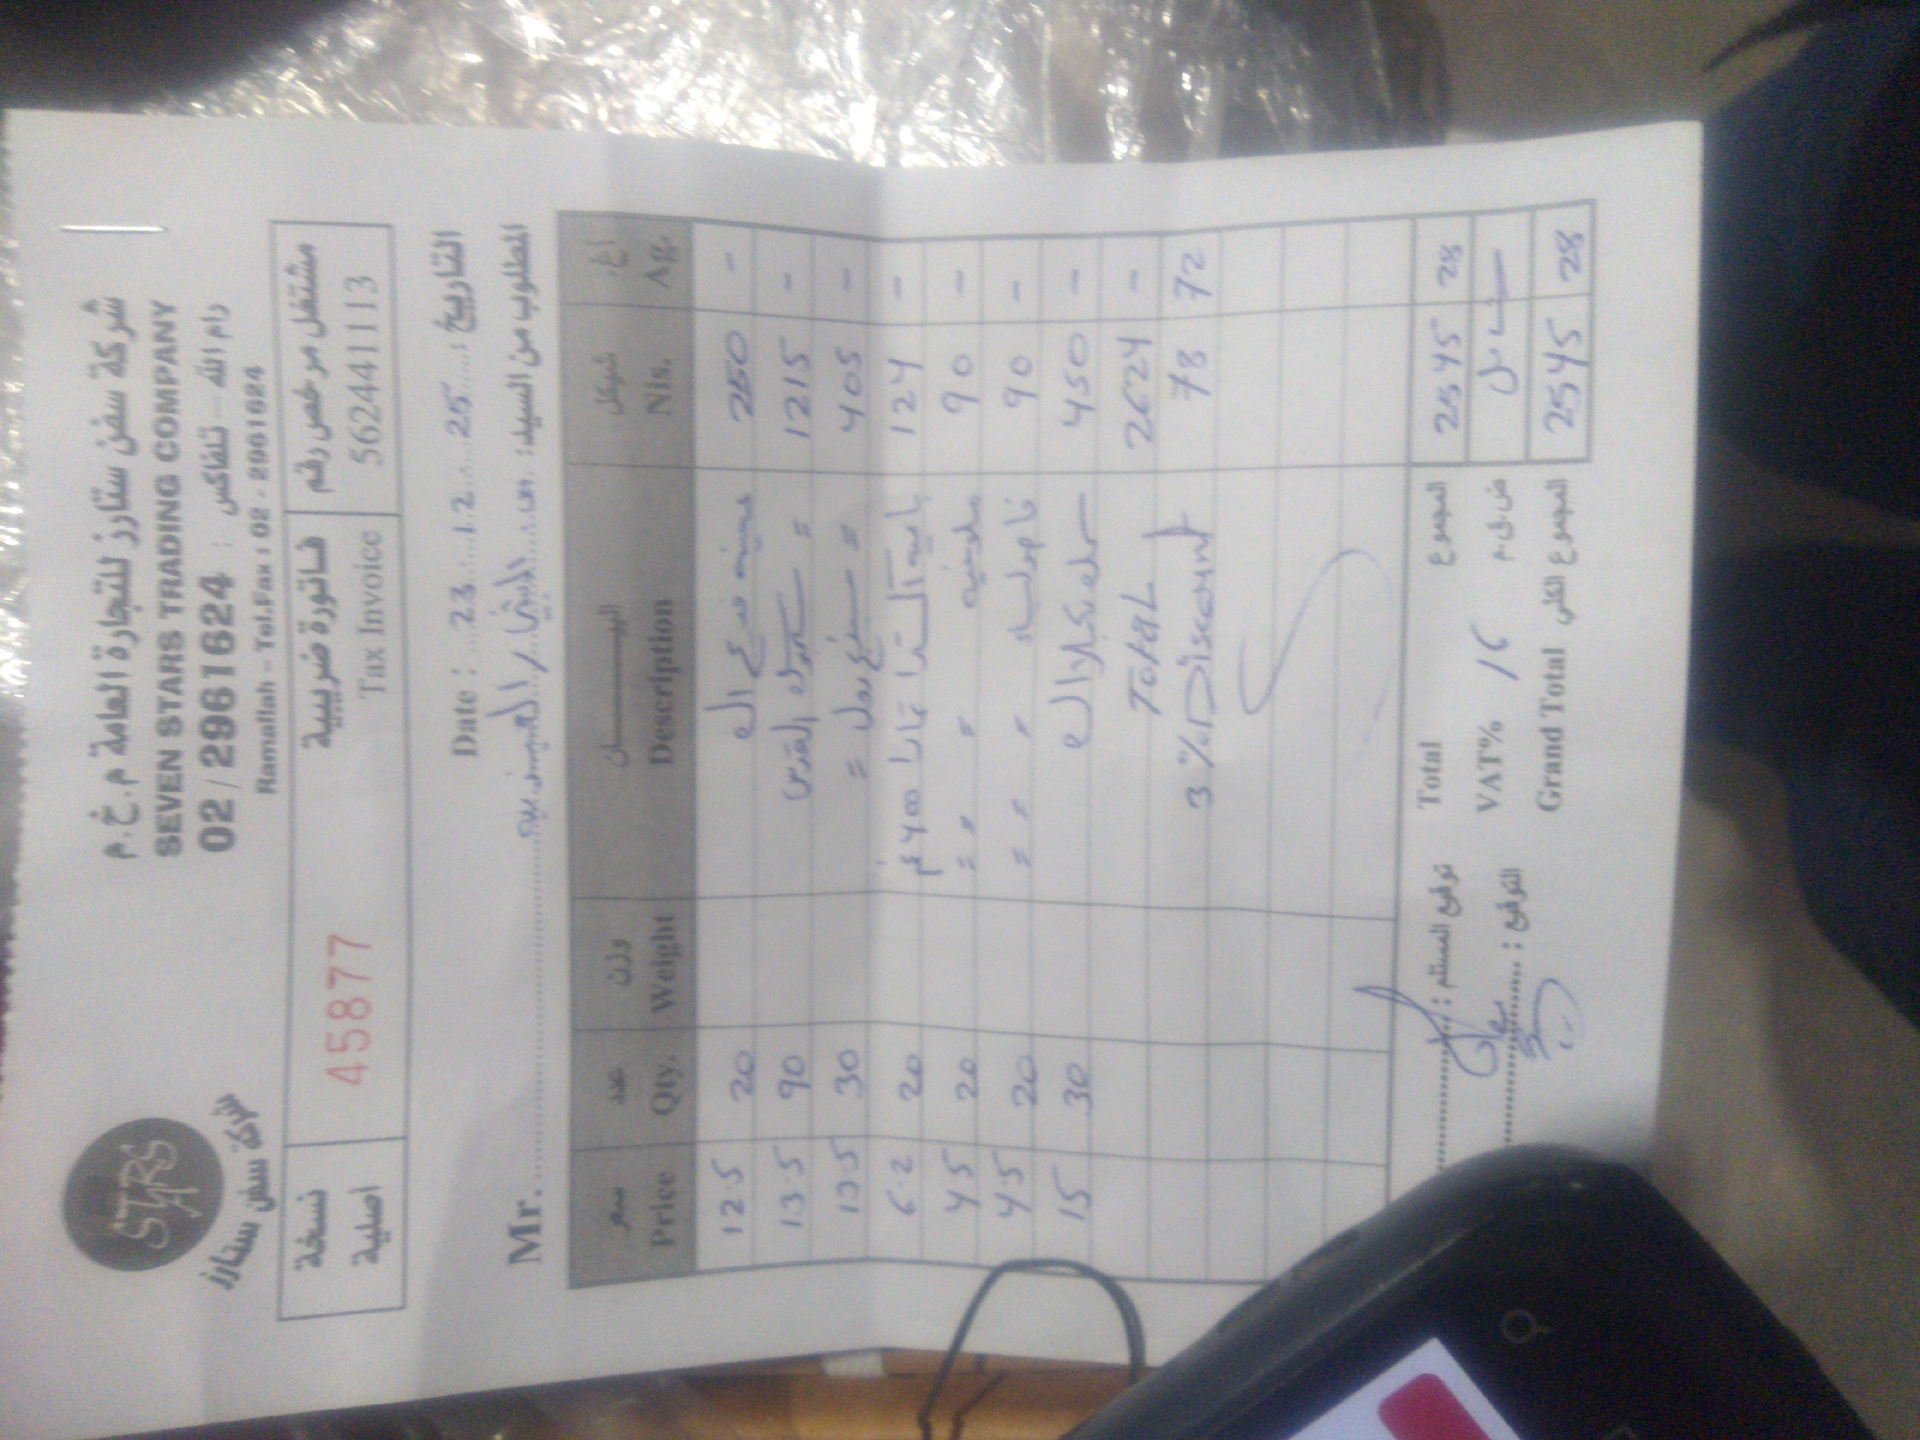 شركة سفن ستارز للتجارة العامة م.خ.م
SEVEN STARS TRADING COMPANY
02/2961624 : رام الله - تلفاكس
Ramallah - Tel.Fax : 02 - 2961624
STARS
شركة سفن ستارز
نسخة اصلية 45877 فاتورة ضريبية Tax Invoice مشتغل مرخص رقم 562441113
Date : 23.12.25 : التاريخ
Mr. المطلوب من السيد:
سعر Price عدد Qty. وزن Weight البيــــــــان Description شيكل Nis. اغ. Ag.
12.5 20 250 -
13.5 90 = القدس 1215 -
13.5 30 = = 405 -
6.2 20 124 -
4.5 20 = = = 90 -
4.5 20 = = = 90 -
15 30 450 -
Total 2624 -
3% Discount 78 72
توقيع المستلم : Total المجموع 2545 28
التوقيع : VAT% 16 ض.ق.م شامل
Grand Total المجموع الكلي 2545 28